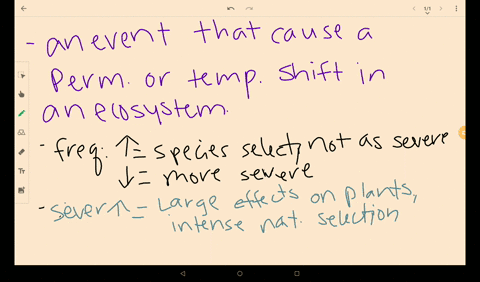 - an event that cause a
perm. or temp. shift in
an ecosystem.
- freq: ↑= species select, not as severe
↓= more severe
- sever↑ = Large effects on plants,
intense nat. selection
1/1
Tr